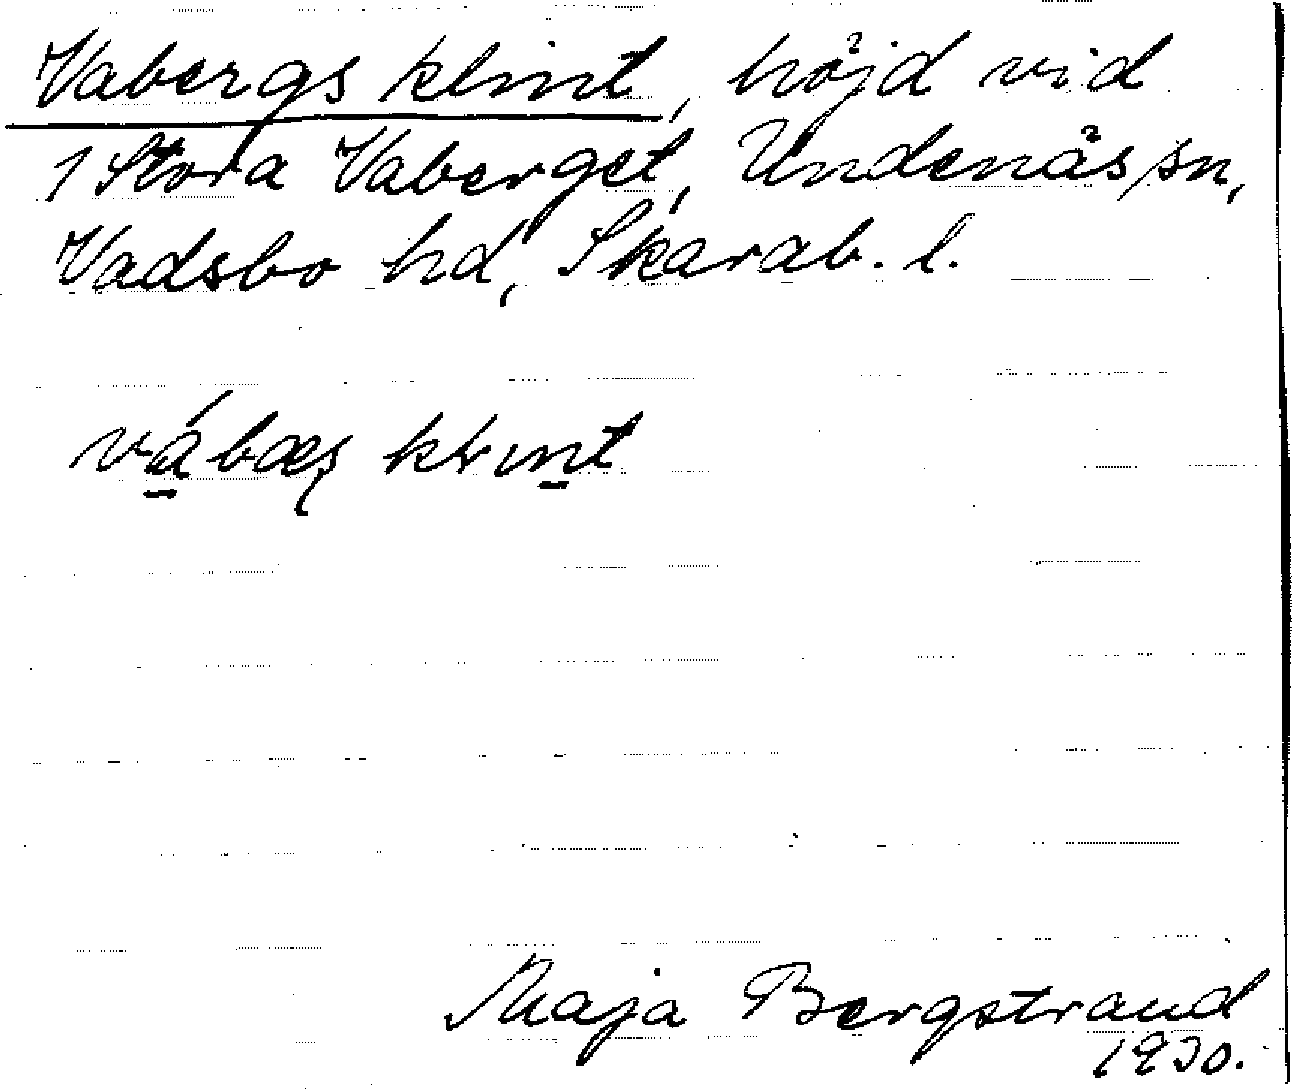 Vabergs klint, höjd vid
1 Stora Vaberget, Undenäs sn,
Vadsbo hd, Skarab. l.
Maja Bergstrand
1930.